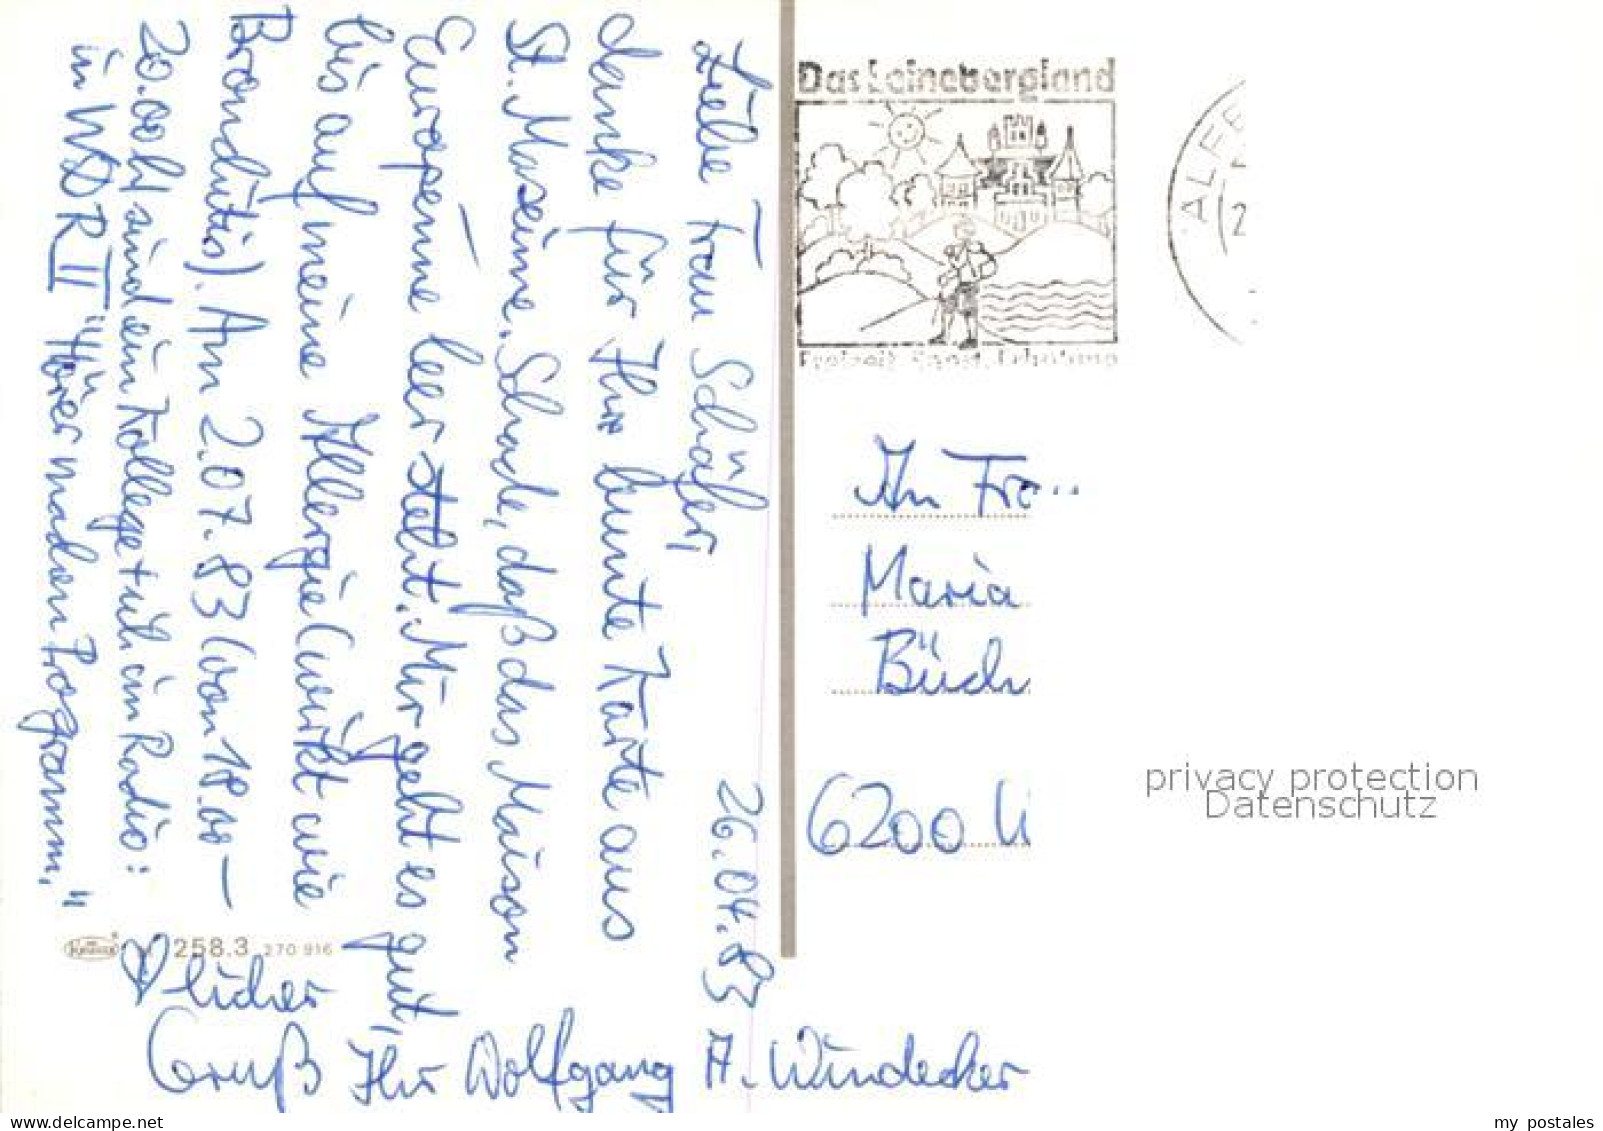 26.04.83
Liebe Frau Schäfer,
danke für Ihre bunte Karte aus
St. Maxime. Schade, daß das Maison
Européenne leer steht. Mir geht es gut,
bis auf meine Allergie (wirkt wie
Bronchitis). Am 2.07.83 (von 18.00–
20.00h sind ein Kollege + ich im Radio:
in WDR II "Hörer machen Programm."
♡licher
Gruß Ihr Wolfgang A. Windecker
258.3 270 916
Das Leinebergland
Freizeit, Kunst, Erholung
ALFE
An Fra
Maria
Büch
6200 W
privacy protection
Datenschutz
my postales